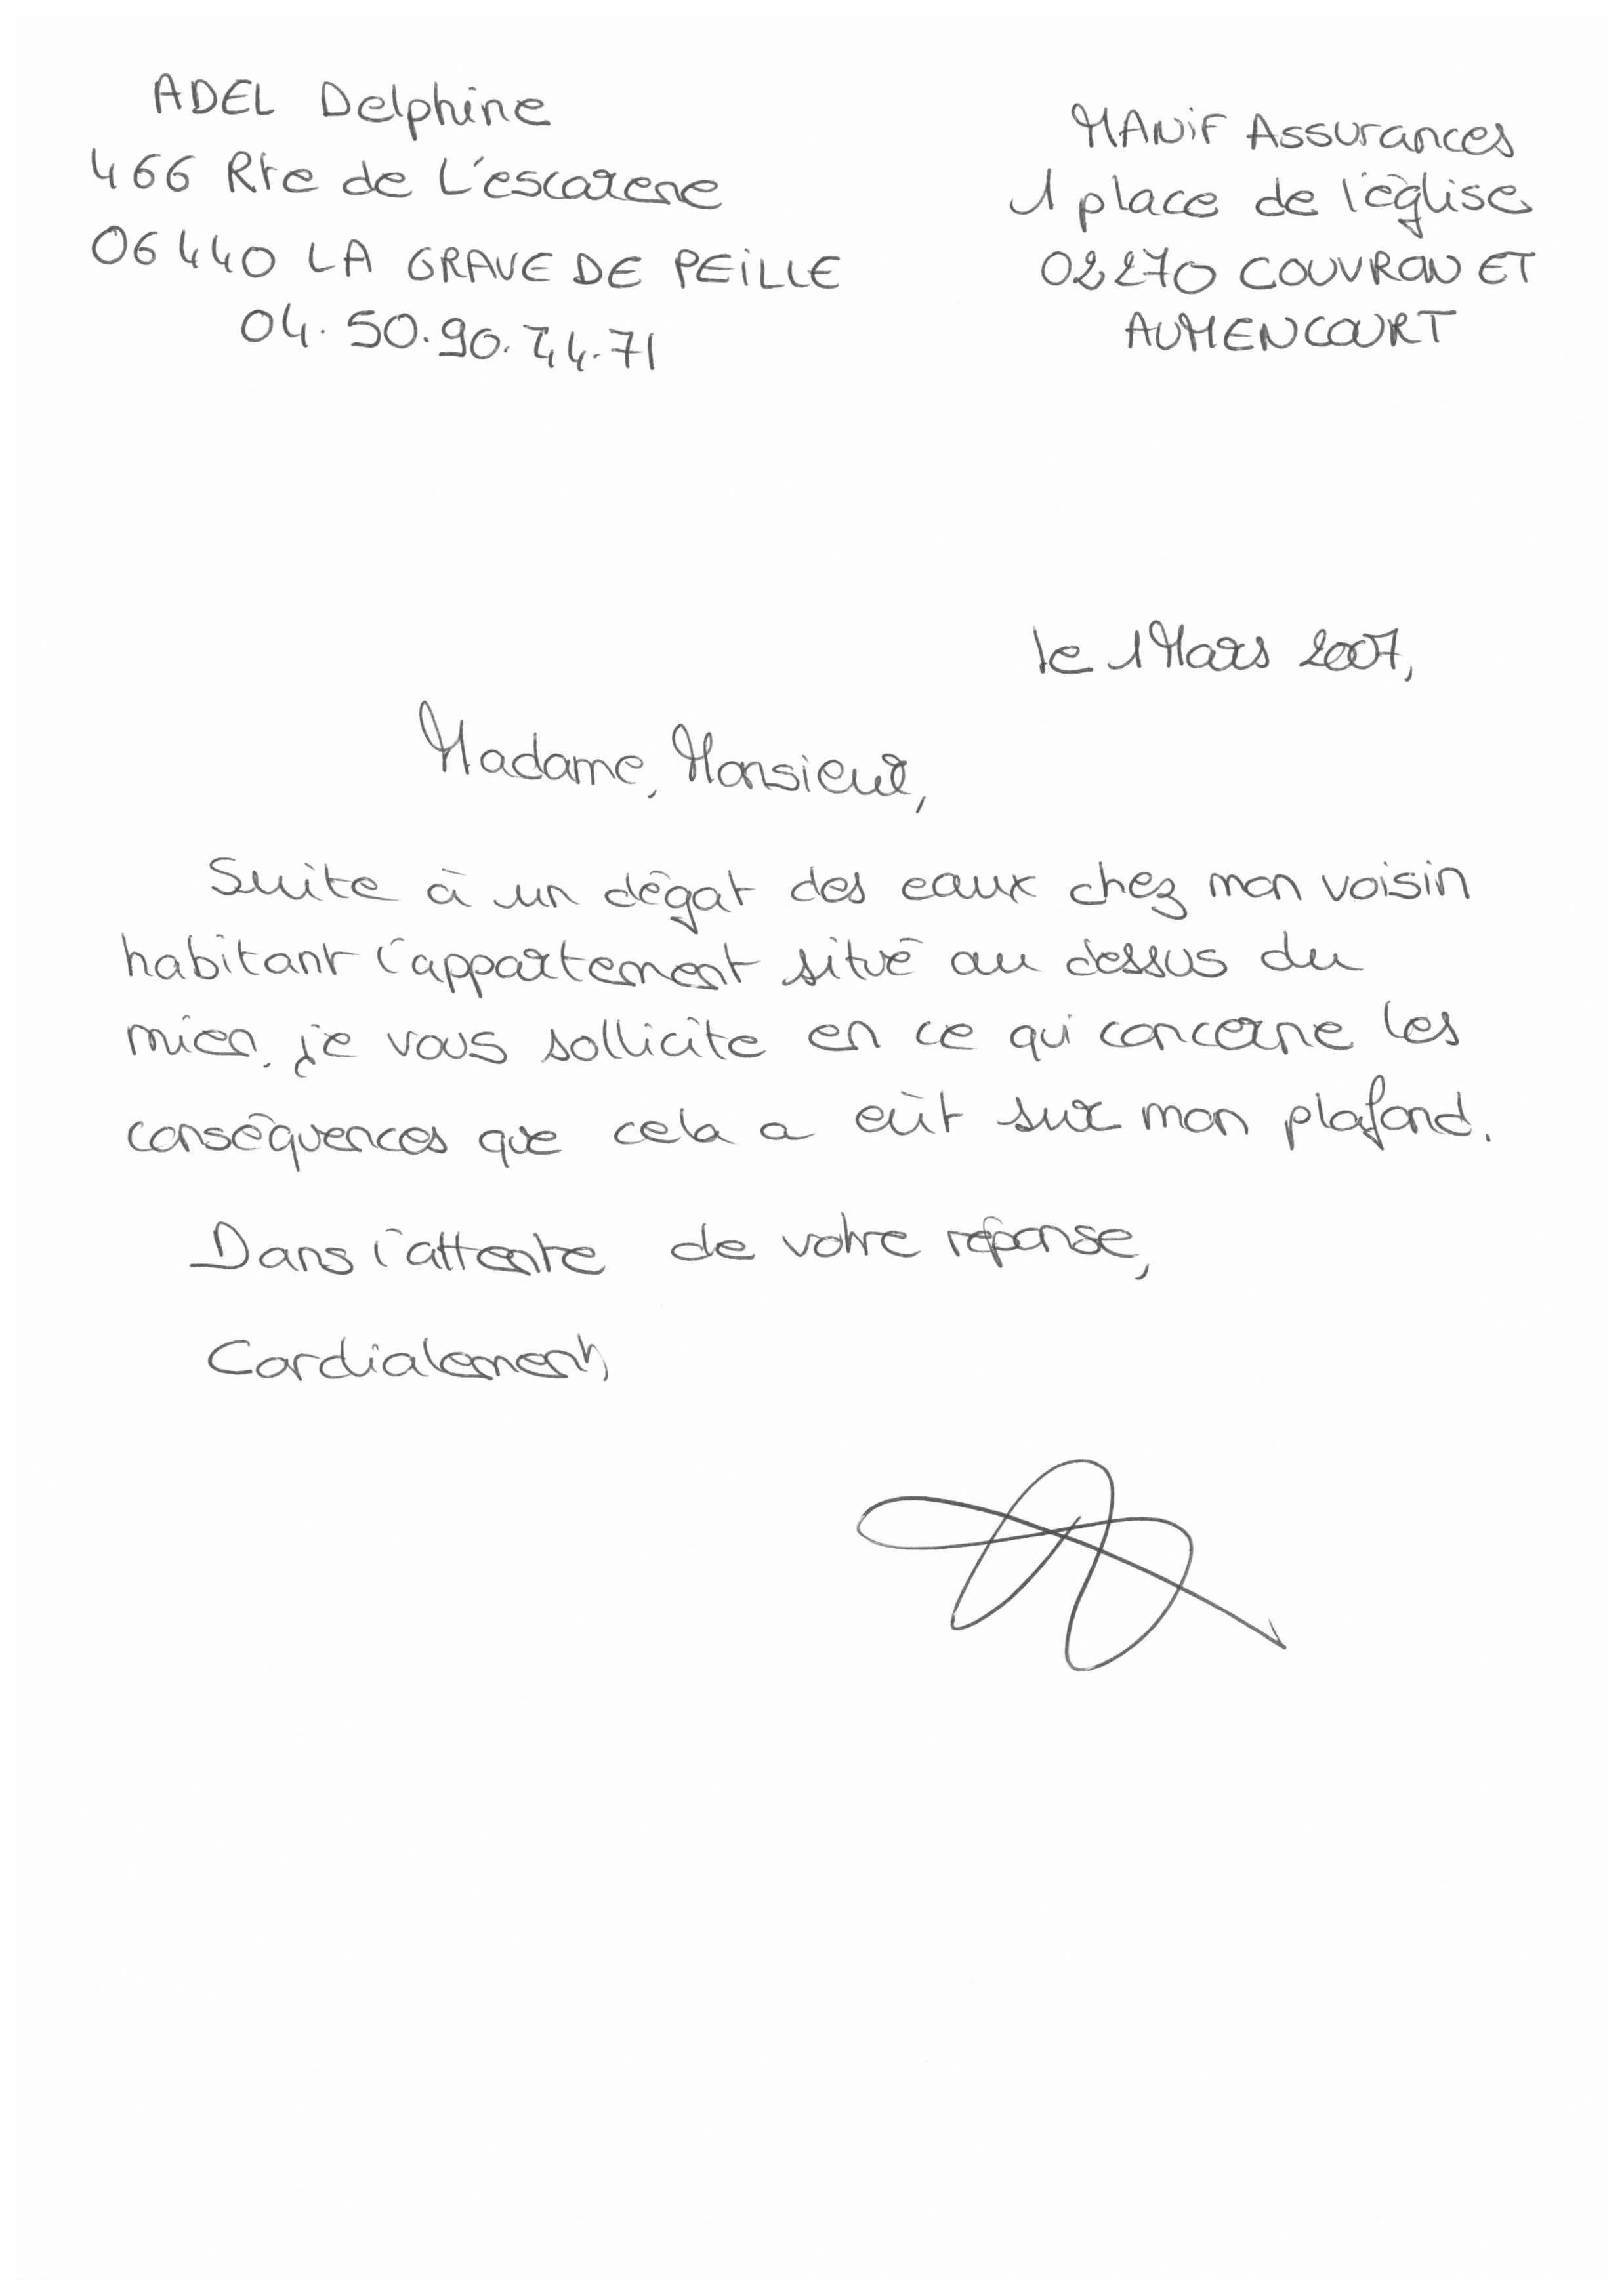 ADEL Delphine
466 Rte de L'escarene
06440 LA GRAVE DE PEILLE
04.50.90.74.71
MANiF Assurances
1 place de l'église
02270 COUVRON ET
AUMENCOURT
le 1 Mars 2007,
Madame, Monsieur,
Suite à un dégat des eaux chez mon voisin
habitant l'appartement situé au dessus du
mien, je vous sollicite en ce qui concerne les
conséquences que cela a eût sur mon plafond.
Dans l'attente de votre réponse,
Cordialement,